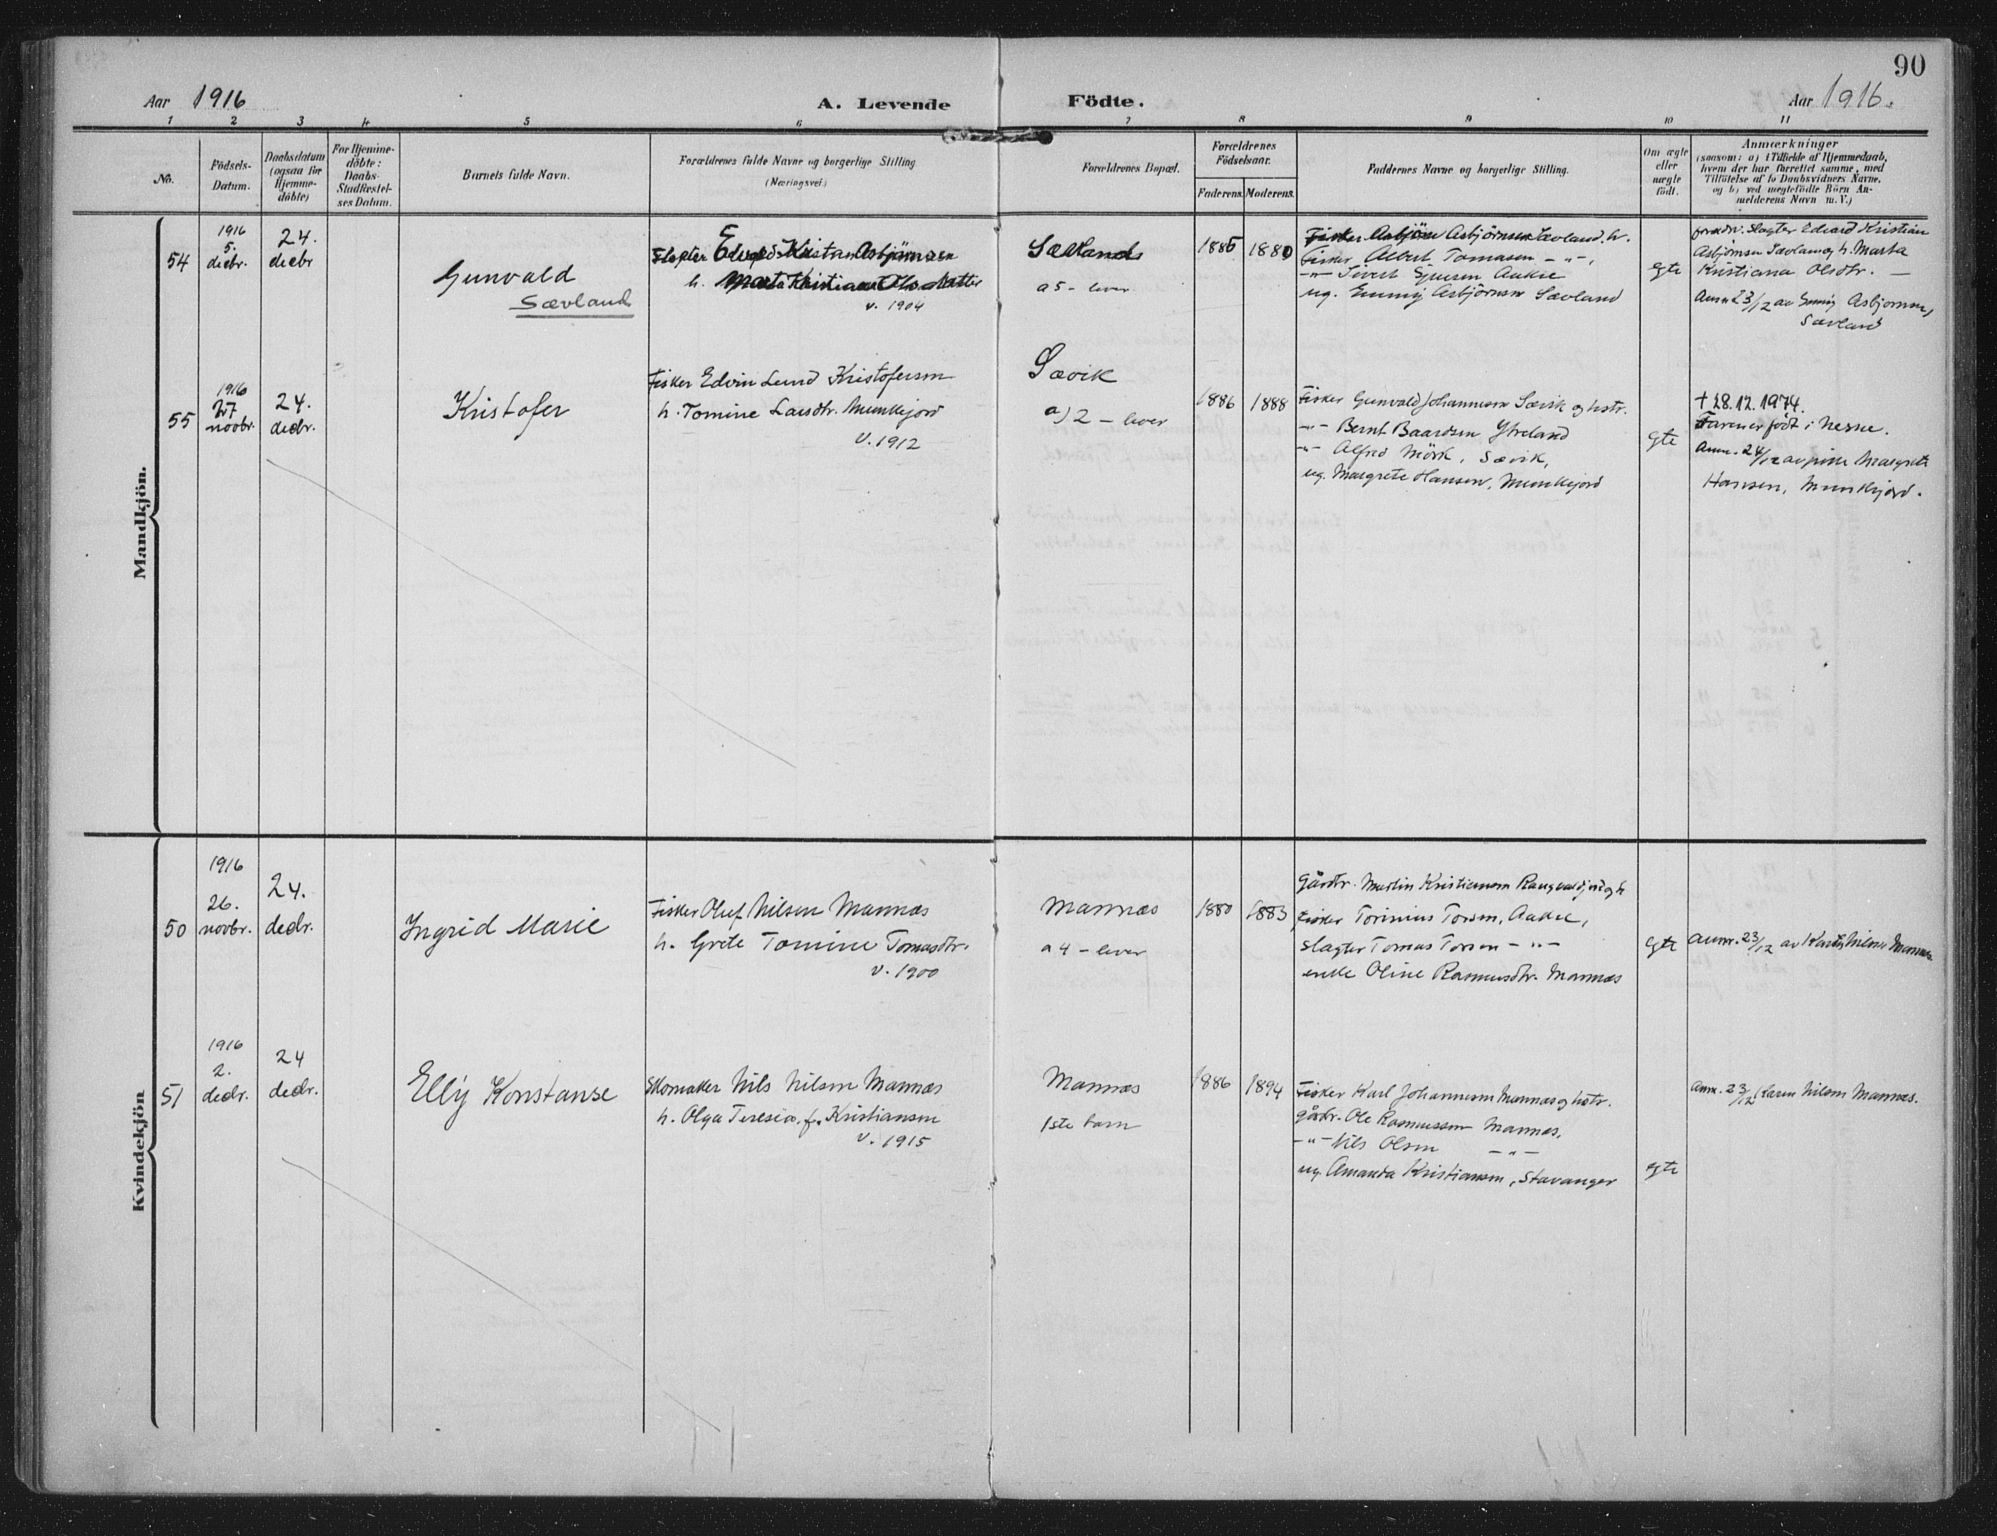 90
Aar 1916
A. Levende
Födte.
Aar 1916.
1 2 3 4 5 6 7 8 9 10 11
No.
Födsels-
Datum.
Daabsdatum
(ogsaa for
Hjemme-
döbte)
For Hjemme-
döbte:
Daabs-
Stadfæstel-
ses Datum.
Barnets fulde Navn.
Forældrenes fulde Navne og borgerlige Stilling
(Næringsvei)
Forældrenes Bopæl.
Forældrenes
Födselsaar.
Faderens. Moderens.
Faddernes Navne og borgerlige Stilling.
Om ægte
eller
uægte
födt.
Anmærkninger
(saasom: a) i Tilfælde af Hjemmedaab,
hvem der har forrettet samme, med
Tilföielse af to Daabsvidners Navne,
og b) ved uegtefödte Börn An-
melderens Navn m. V.)
Mandkjön.
54
1916
5.
decbr.
24.
decbr
Gunvald
Sævland
Slagter Edvard Kristian Asbjörnsen
h. Marta Kristiana Olsdatter
v. 1904
Sævland
a 5 - lever
1885
1880
Fisker Asbjörn Asbjörnsen Sævland. h.
Fisker Albert Tomasen - " - ,
- " - Sivert Sjursen Aakre
ug. Emmy Asbjörnsen Sævland
egte
foreldr. Slagter Edvard Kristian
Asbjörnsen Sævland og h. Marta
Kristiana Olsdtr. —
Anm 23/12 av Emmy Asbjörnsen,
Sævland
55
1916
27
novbr.
24.
decbr.
Kristofer
Fisker Edvin Lund Kristofersen
h. Tomine Larsdtr. Munkejord
V. 1912
Sævik
a) 2 - lever
1886
1888
Fisker Gunvald Johannesen Sævik og hstr.
- " - Bernt Baardsen Ytreland
- " - Alfred Mörk, Sævik,
ug. Margrete Hansen, Munkejord
egte
+ 28.12.1974.
Faren er födt i Nesne.
Anm. 24/12 av pike Margrete
Hansen, Munkejord.
Kvindekjön
50
1916
26.
novbr.
24.
decbr.
Ingrid Marie
Fisker Oluf Nilsen Mannæs
h. Grete Tomine Tomasdtr.
V. 1900
Mannæs
a 4 - lever
1880
1883
Gårdbr. Martin Kristiansen Rangvaldjord og h
Fisker Torinius Torsen, Aakre,
Slagter Tomas Torsen - " -
enke Oline Rasmusdtr. Mannæs
egte
Anm. 23/12 av Nilsen Mannæs
51
1916
2.
decbr.
24
decbr.
Elly Konstanse
Skomaker Nils Nilsen Mannæs
h. Olga Teresia f. Kristiansen
V. 1915
Mannæs
1ste barn
1886
1894
Fisker Karl Johannesen Mannæs og hstr.
Gårdbr. Ole Rasmussen Mannæs,
- " - Nils Olsen - " -
ug. Amanda Kristiansen, Stavanger
egte
Anm. 23/12 Karen Nilsen Mannæs.